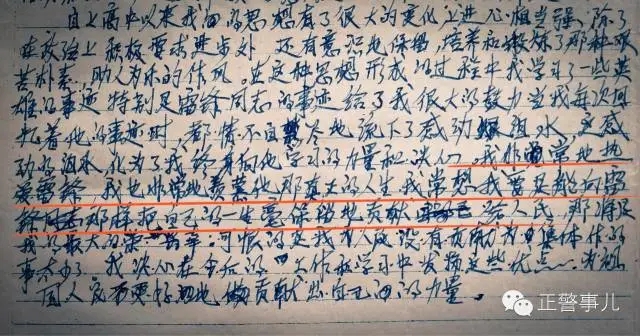 自上高中以来我的思想有了很大的变化上进心相当强、除了
在政治上积极要求进步外 还有意识地保持,培养和锻炼了那种艰
苦朴素、助人为乐的作风。在这种思想形成的过程中我学习了一些英
雄的事迹 特别是雷锋同志的事迹 给了我很大的鼓力当我每次回
忆着他的事迹时,都情不自禁地流下了感动 泪水,这感
动的泪水化为了我终身向他学习的力量和决心, 我非常地热
爱雷锋,我也非常地羡慕他那真正的人生我常想,我若是能向雷
锋 那样把自己的一生毫保留地贡献 给人民,那将是
我的最大的 可恨的是我为人民没有贡献为集体作的
事太少了、我决心在今后的 工作和学习中发扬这些优点
国人民 更好地做贡献出自己的力量。
正警事儿